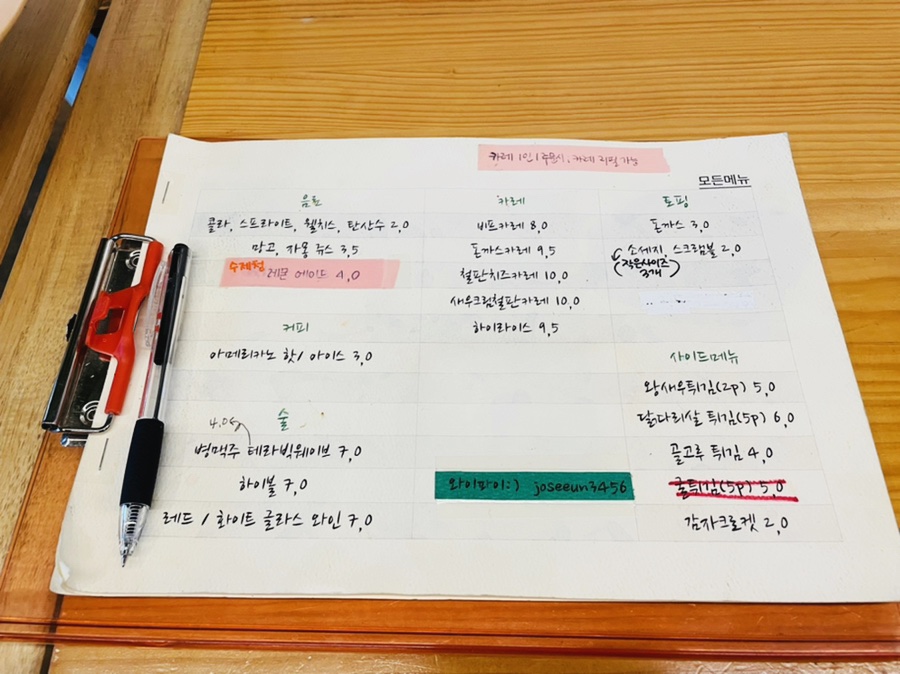 카레 1인 1주문시, 카레 리필 가능
모든메뉴
음료
콜라, 스프라이트, 웰치스, 탄산수 2,0
망고, 자몽 쥬스 3,5
수제청
레몬 에이드 4,0
커피
아메리카노 핫/아이스 3,0
술
4.0
병맥주 테라빅웨이브 7,0
하이볼 7,0
레드 / 화이트 글라스 와인 7,0
카레
비프카레 8,0
돈까스카레 9,5
철판치즈카레 10,0
새우크림철판카레 10,0
하이라이스 9,5
와이파이:) joseeun3456
토핑
돈까스 3,0
소세지, 스크램블 2,0
(작은사이즈
3개)
사이드메뉴
왕새우튀김(2p) 5,0
닭다리살 튀김(5p) 6,0
골고루 튀김 4,0
굴튀김(5p) 5,0
감자크로켓 2,0